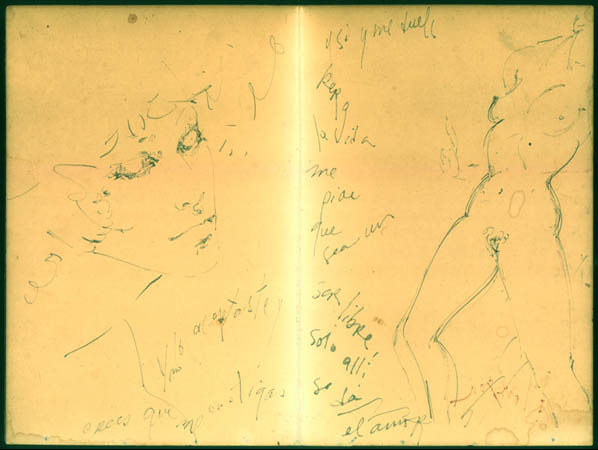 y lo aceptaste y
no
crees que
castigas
y si y me duele
pero
la vida
me
pide
que
sea un
ser libre
solo allí!
se da
el amor